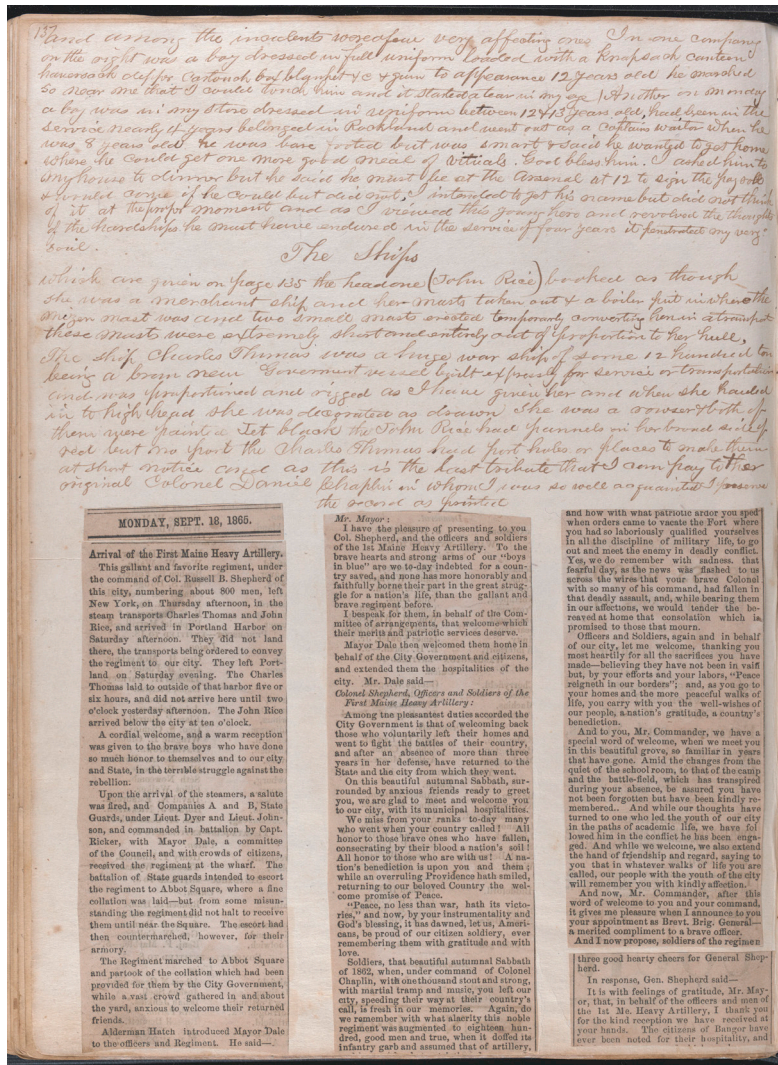 137
and among the incidents were a few very affecting ones In one company
on the right was a boy dressed in full uniform loaded with a knapsack canteen
haversack cartouch box blanket &c & gun to appearance 12 years old he marched
so near me that I could touch him and it started a tear in my eye Another on monday
a boy was in my store dressed in uniform between 12 & 13 years old, had been in the
service nearly 4 years belonged in Rockland and went out as a Captains waitor when he
was 8 years old he was bare footed but was smart & said he wanted to get home
where he could get one more good meal of vituals. God bless him. I asked him to
my house to dinner but he said he must be at the Arsenal at 12 to sign the pay roll
& would come if he could but did not, I intended to get his name but did not think
of it at the proper moment and as I viewed this young hero and revolved the thoughts
of the hardships he must have endured in the service of four years it penetrated my very
soul.
The Ships
which are given on page 135 the head one (John Rice) looked as though
she was a merchant ship and her masts taken out & a boiler put in where the
mizen mast was and two small masts erected temporarly converting her in a transport
these masts were extremely short and entirely out of proportion to her hull,
The ship Charles Thomas was a huge war ship of some 12 hundred ton
being a bran new Goverment vessel built expressly for service or transportation
and was proportioned and rigged as I have given her and when she hauled
in to high head she was decorated as drawn She was a rowser & both of
them were paint a Jet black the John Rice had pannels in her broad side of
red but no port the Charles Thomas had port holes or places to make them
at short notice and as this is the last tribute that I can pay to ther
original Colonel Daniel Chaplin in whom I was so well acquainted I
the record as printed
MONDAY, SEPT. 18, 1865.
Arrival of the First Maine Heavy Artillery.
This gallant and favorite regiment, under
the command of Col. Russell B. Shepherd of
this city, numbering about 800 men, left
New York, on Thursday afternoon, in the
steam transports Charles Thomas and John
Rice, and arrived in Portland Harbor on
Saturday afternoon. They did not land
there, the transports being ordered to convey
the regiment to our city. They left Port-
land on Saturday evening. The Charles
Thomas laid to outside of that harbor five or
six hours, and did not arrive here until two
o'clock yesterday afternoon. The John Rice
arrived below the city at ten o'clock.
A cordial welcome, and a warm reception
was given to the brave boys who have done
so much honor to themselves and to our city
and State, in the terrible struggle against the
rebellion.
Upon the arrival of the steamers, a salute
was fired, and Companies A and B, State
Guards, under Lieut. Dyer and Lieut. John-
son, and commanded in battalion by Capt.
Ricker, with Mayor Dale, a committee
of the Council, and with crowds of citizens,
received the regiment at the wharf. The
battalion of State guards intended to escort
the regiment to Abbot Square, where a fine
collation was laid—but from some misun-
standing the regiment did not halt to receive
them until near the Square. The escort had
then countermarched, however, for their
armory.
The Regiment marched to Abbot Square
and partook of the collation which had been
provided for them by the City Government,
while a vast crowd gathered in and about
the yard, anxious to welcome their returned
friends.
Alderman Hatch introduced Mayor Dale
to the officers and Regiment. He said—
Mr. Mayor:
I have the pleasure of presenting to you
Col. Shepherd, and the officers and soldiers
of the 1st Maine Heavy Artillery. To the
brave hearts and strong arms of our "boys
in blue" are we to-day indebted for a coun-
try saved, and none has more honorably and
faithfully borne their part in the great strug-
gle for a nation's life, than the gallant and
brave regiment before.
I bespeak for them, in behalf of the Com-
mittee of arrangements, that welcome which
their merits and patriotic services deserve.
Mayor Dale then welcomed them home in
behalf of the City Government and citizens,
and extended them the hospitalities of the
city. Mr. Dale said—
Colonel Shepherd, Officers and Soldiers of the
First Maine Heavy Artillery:
Among the pleasantest duties accorded the
City Government is that of welcoming back
those who voluntarily left their homes and
went to fight the battles of their country,
and after an absence of more than three
years in her defense, have returned to the
State and the city from which they went.
On this beautiful autumnal Sabbath, sur-
rounded by anxious friends ready to greet
you, we are glad to meet and welcome you
to our city, with its municipal hospitalities.
We miss from your ranks to-day many
who went when your country called! All
honor to those brave ones who have fallen,
consecrating by their blood a nation's soil!
All honor to those who are with us! A na-
tion's benediction is upon you and them;
while an overruling Providence hath smiled,
returning to our beloved Country the wel-
come promise of Peace.
"Peace, no less than war, hath its victo-
ries," and now, by your instrumentality and
God's blessing, it has dawned, let us, Ameri-
cans, be proud of our citizen soldiery, ever
remembering them with gratitude and with
love.
Soldiers, that beautiful autumnal Sabbath
of 1862, when, under command of Colonel
Chaplin, with one thousand stout and strong,
with martial tramp and music, you left our
city, speeding their way at their country's
call, is fresh in our memories. Again, do
we remember with what alacrity this noble
regiment was augmented to eighteen hun-
dred, good men and true, when it doffed its
infantry garb and assumed that of artillery,
and how with what patriotic ardor you sped
when orders came to vacate the Fort where
you had so laboriously qualified yourselves
in all the discipline of military life, to go
out and meet the enemy in deadly conflict.
Yes, we do remember with sadness, that
fearful day, as the news was flashed to us
across the wires that your brave Colonel
with so many of his command, had fallen in
that deadly assault, and, while bearing them
in our affections, we would tender the be-
reaved at home that consolation which is
promised to those that mourn.
Officers and Soldiers, again and in behalf
of our city, let me welcome, thanking you
most heartily for all the sacrifices you have
made—believing they have not been in vain
but, by your efforts and your labors, "Peace
reigneth in our borders"; and, as you go to
your homes and the more peaceful walks of
life, you carry with you the well-wishes of
our people, a nation's gratitude, a country's
benediction.
And to you, Mr. Commander, we have a
special word of welcome, when we meet you
in this beautiful grove, so familiar in years
that have gone. Amid the changes from the
quiet of the school room, to that of the camp
and the battle-field, which has transpired
during your absence, be assured you have
not been forgotten but have been kindly re-
membered.. And while our thoughts have
turned to one who led the youth of our city
in the paths of academic life, we have fol
lowed him in the conflict he has been enga-
ged. And while we welcome, we also extend
the hand of friendship and regard, saying to
you that in whatever walks of life you are
called, our people with the youth of the city
will remember you with kindly affection.
And now, Mr. Commander, after this
word of welcome to you and your command,
it gives me pleasure when I announce to you
your appointment as Brevt. Brig. General—
a merited compliment to a brave officer.
And I now propose, soldiers of the regimen
three good hearty cheers for General Shep-
herd.
In response, Gen. Shepherd said—
It is with feelings of gratitude, Mr. May-
or, that, in behalf of the officers and men of
the 1st Me. Heavy Artillery, I thank you
for the kind reception we have received at
your hands. The citizens of Bangor have
ever been noted for their hospitality, and